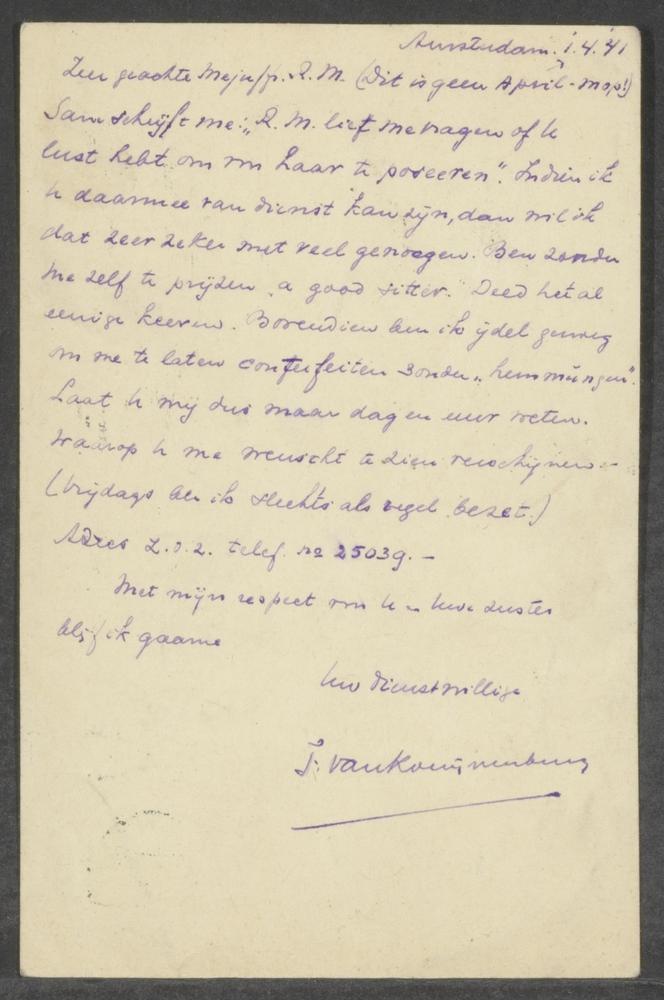 Amsterdam. 1.4.'41
Zeer geachte Mejuffr. R.M. (Dit is geen April-mop!)
Sam schrijft me: „R.M. liet me vragen of U
lust hebt om vn haar te poseeren". Indien ik
U daarmee van dienst kan zijn, dan wil ik
dat zeer zeker met veel genoegen. Ben zonder
me zelf te prijzen „a good sitter." Deed het al
eenige keeren. Bovendien ben ik ijdel genoeg
om me te laten conterfeiten zonder „hemmungen".
Laat U mij dus maar dag en uur weten.
Waarop U me wenscht te zien verschijnen. -
(Vrijdags ben ik slechts als regel bezet.)
Adres Z.O.Z. telef. no 25039. -
Met mijn respect vn U en Uwe zuster
blijf ik gaarne
Uw dienstwillige
J. van Kouijnenburg